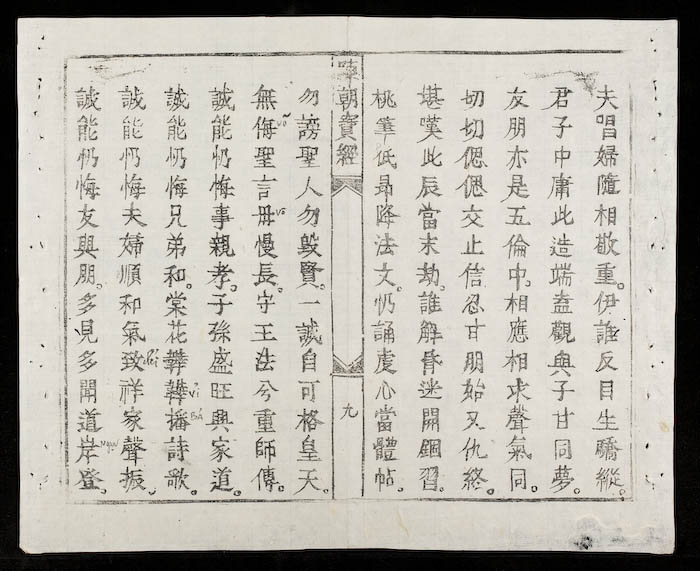 夫唱婦隨相敬重。伊誰反目生驕縱。
君子中庸此造端盍觀與子甘同夢。
友朋亦是五倫中。相應相求聲氣同。
切切偲偲交止信忍甘朋始又仇終。
堪嘆此辰當末劫。誰解昏迷開錮習。
桃筆低昂降法文。忉誦虔心當體帖。
朝寶經
九
勿謗聖人勿毀賢。一誠自可格皇天。
無侮聖言毋慢長。守王法兮重師傳。
誠能忉悔事親孝。子孫盛旺興家道。
誠能忉悔兄弟和。棠花韡韡播詩歌。
誠能忉悔夫婦順和氣致祥家聲振。
誠能忉悔友與朋。多見多聞道岸登。